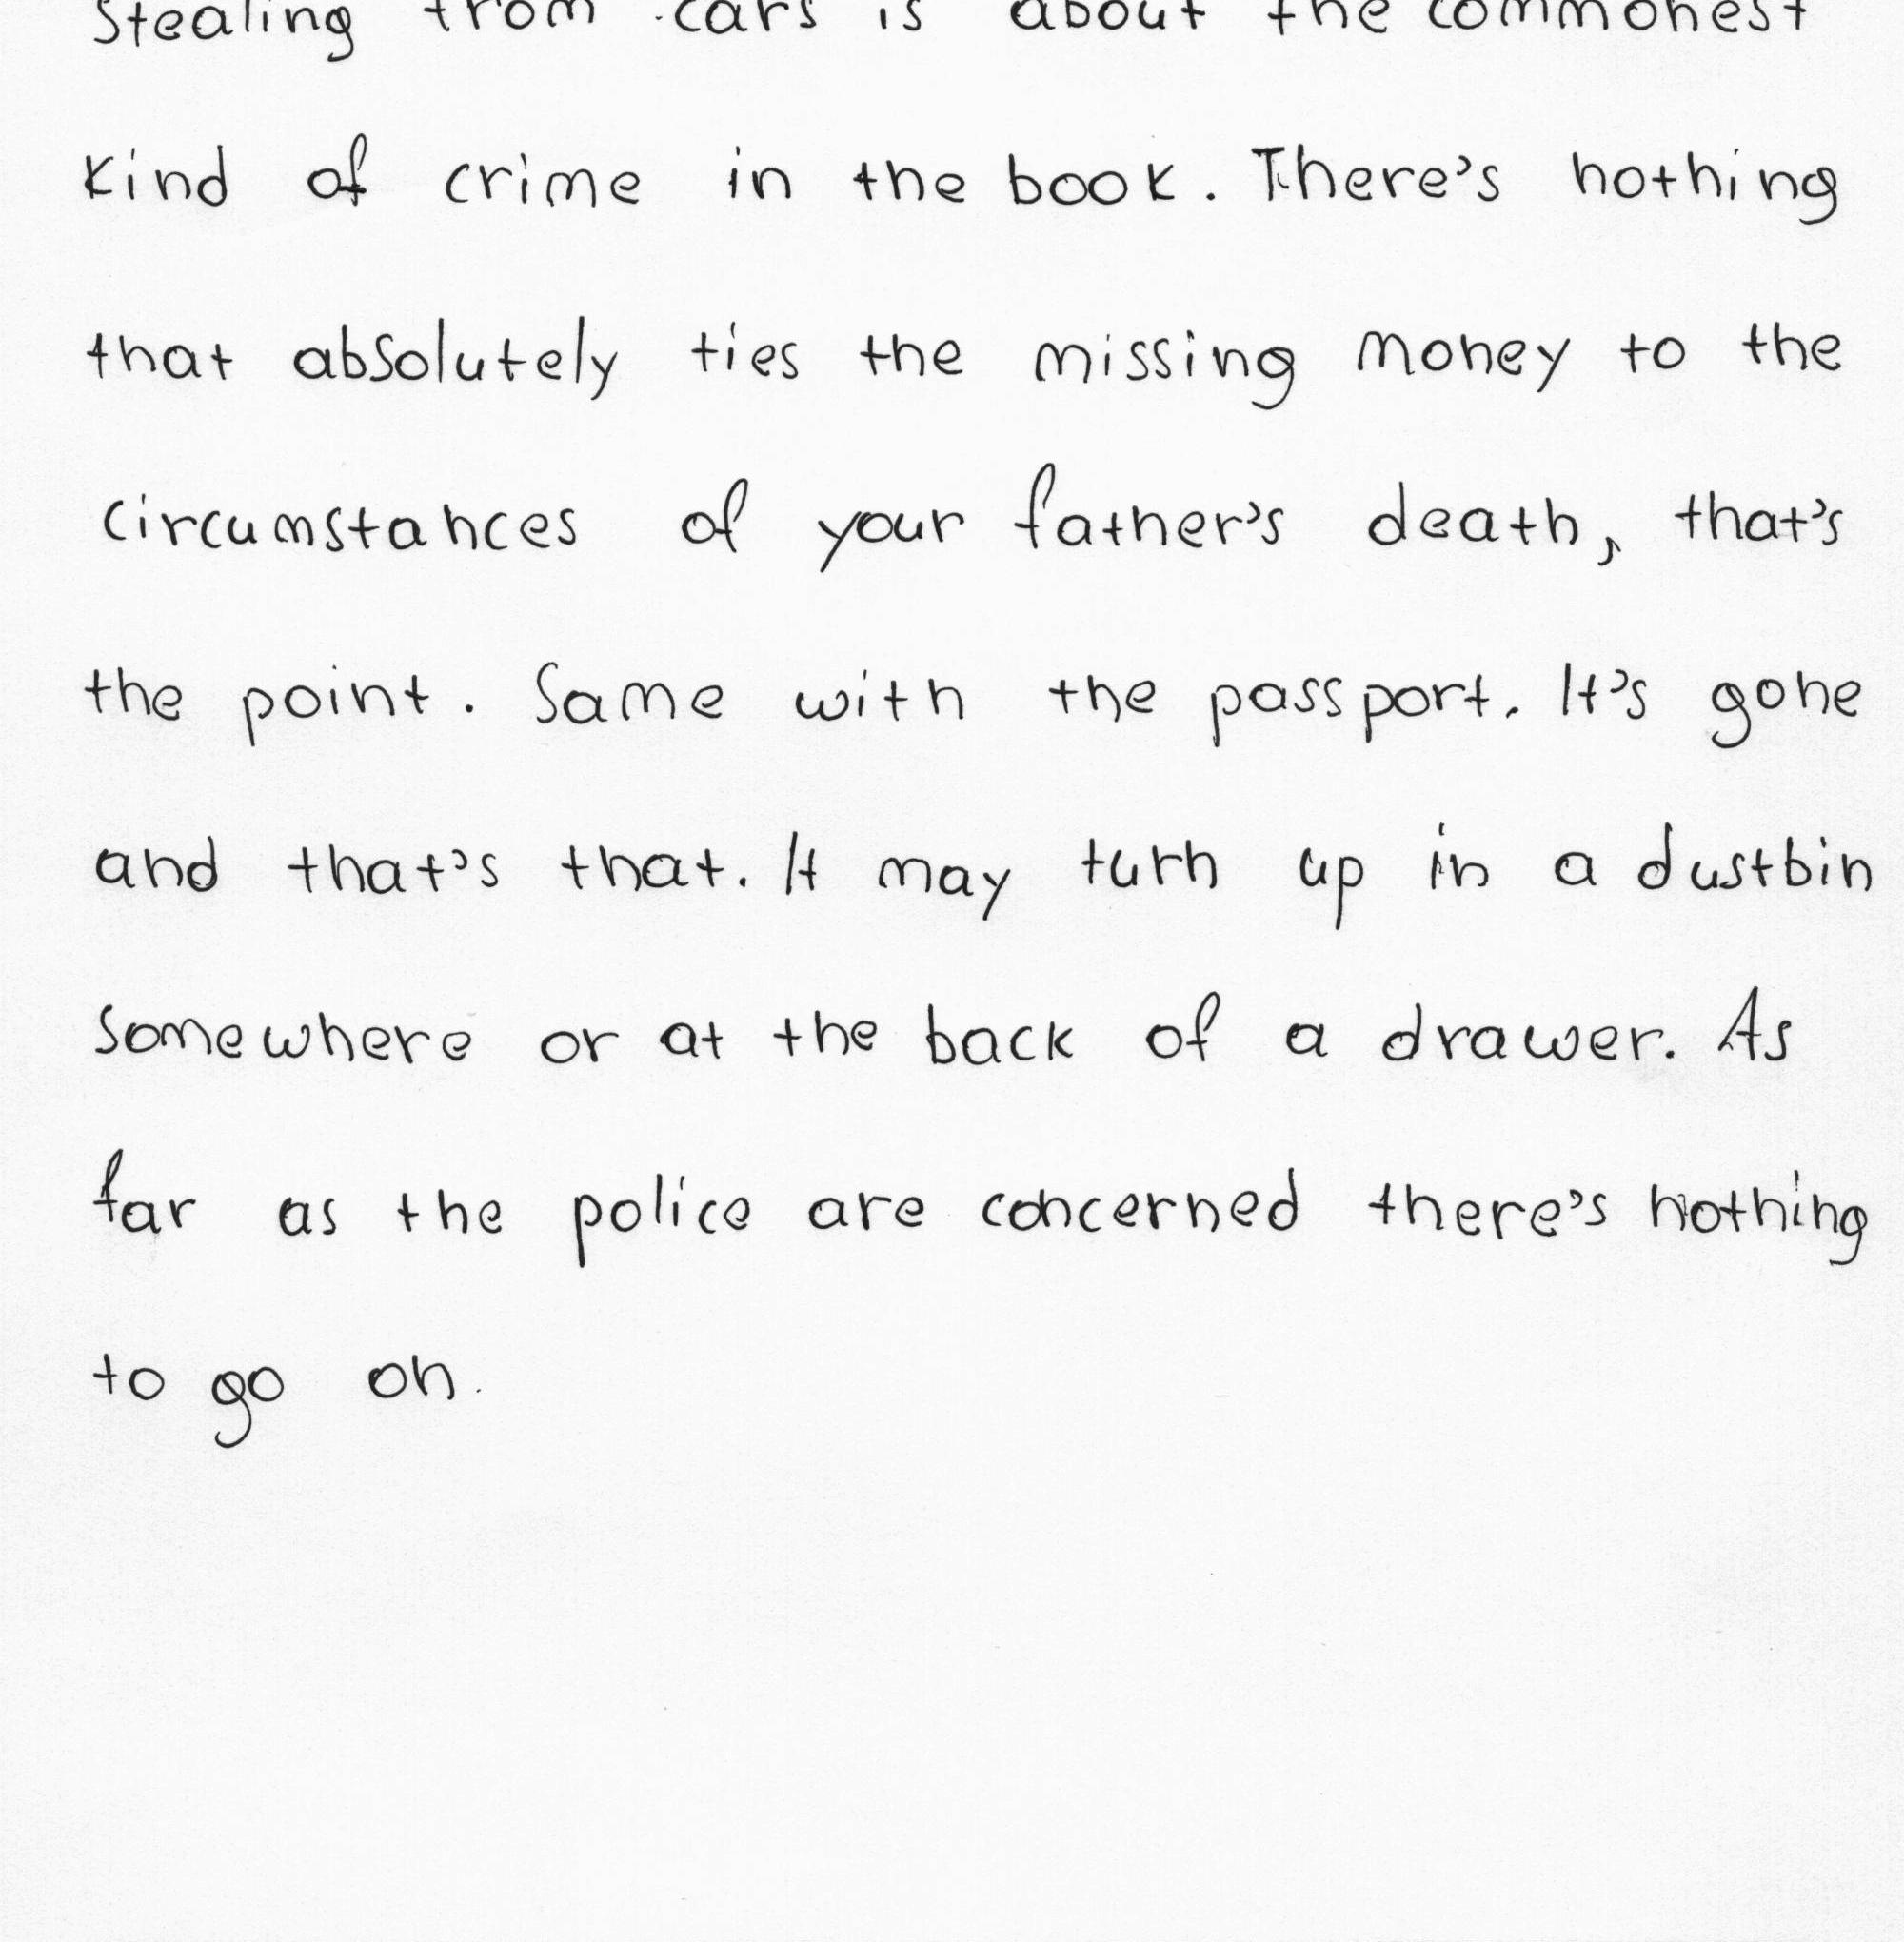 Stealing from cars is about the commonest
kind of crime in the book. There's nothing
that absolutely ties the missing money to the
circumstances of your father's death, that's
the point. Same with the passport. It's gone
and that's that. It may turn up in a dustbin
somewhere or at the back of a drawer. As
far as the police are concerned there's nothing
to go on.